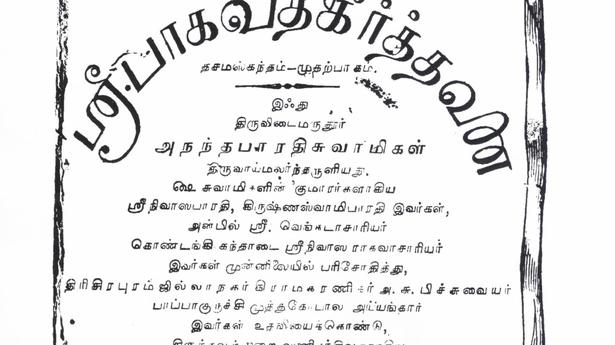 ஸ்ரீ பாகவதகீர்த்தனை
தசமஸ்கந்தம்—முதற்பாகம்.
இஃது
திருவிடைமருதூர்
அநந்தபாரதிசுவாமிகள்
திருவாய்மலர்ந்தருளியது.
ஷை சுவாமிகளின் குமாரர்களாகிய
ஸ்ரீநிவாஸபாரதி, கிருஷ்ணஸ்வாமிபாரதி இவர்கள்,
அன்பில் ஸ்ரீ. வெங்கடாசாரியர்
கொண்டங்கி கந்தாடை ஸ்ரீநிவாஸ ராகவாசாரியர்
இவர்கள் முன்னிலையில் பரிசோதித்து,
திரிசிரபுரம்ஜில்லா நகர் கிராமகரணிகர் அ. சு. பிச்சுவையர்
பாப்பாகுருச்சி முத்தகோபால அய்யங்கார்
இவர்கள் உதவியைக்கொண்டு,